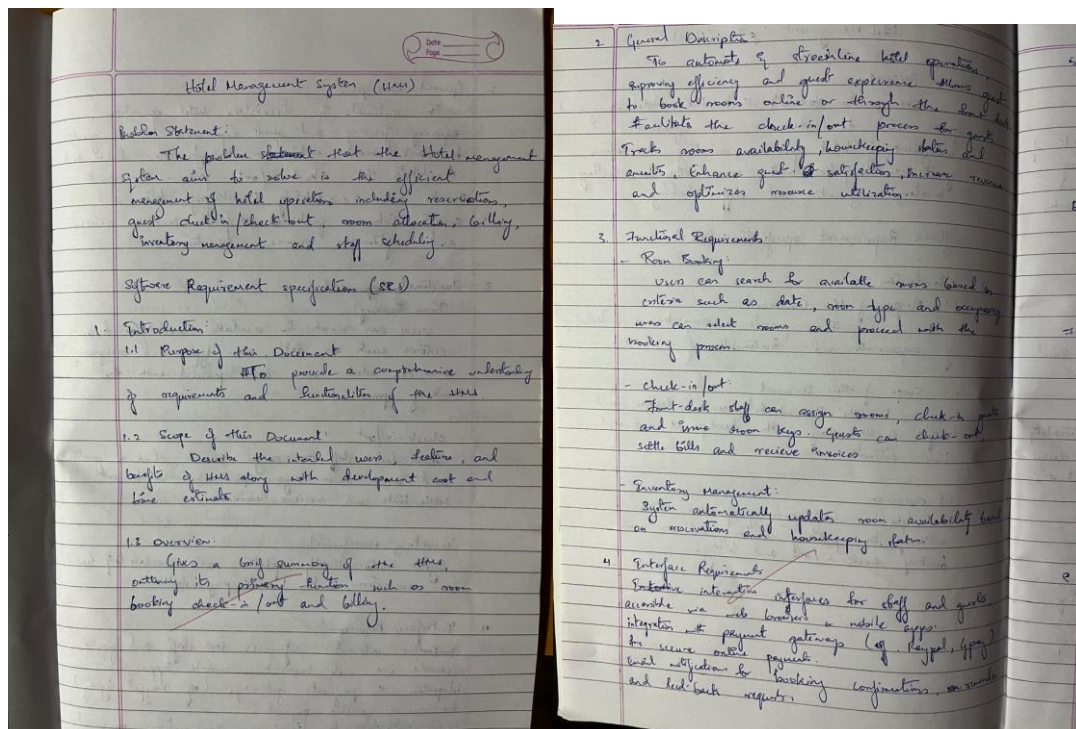 Date
Page
Hotel Management System (HMS)
Problem Statement:
The problem that the Hotel management
system aims to solve is the efficient
management of hotel operations including reservations,
guest check-in/check-out, room allocation, billing,
inventory management and staff scheduling.
Software Requirement specification (SRS)
1. Introduction:
1.1 Purpose of this Document
To provide a comprehensive understanding
of requirements and functionalities of the HMS.
1.2 Scope of this Document:
Describe the intended users, feature, and
benefits of HMS along with development cost and
time estimate.
1.3 Overview:
Gives a brief summary of the HMS,
outlining its primary function such as room
booking check-in/out and billing.
2. General Description:
To automate & streamline hotel operations,
improving efficiency and guest experience. Allows guest
to book rooms online or through the front desk
Facilitate the check-in/out process for guests
Tracks room availability, housekeeping status and
amenities, Enhance guest satisfaction, Increase revenue
and optimizes resource utilization.
3. Functional Requirements:
- Room Booking:
Users can search for available rooms based on
criteria such as date, room type and occupancy
users can select rooms and proceed with the
booking process.
- check-in/out:
Front-desk staff can assign rooms, check-in guests
and issue room keys. Guests can check-out,
settle bills and recieve invoices
- Inventory Management:
System automatically updates room availability based
on reservations and housekeeping status.
4. Interface Requirements
interactive interfaces for staff and guests,
accessible via web browsers or mobile apps.
integration with payment gateways (eg Paypal, Gpay)
for secure online payments.
Email notifications for booking confirmations,
and feed-back requests.